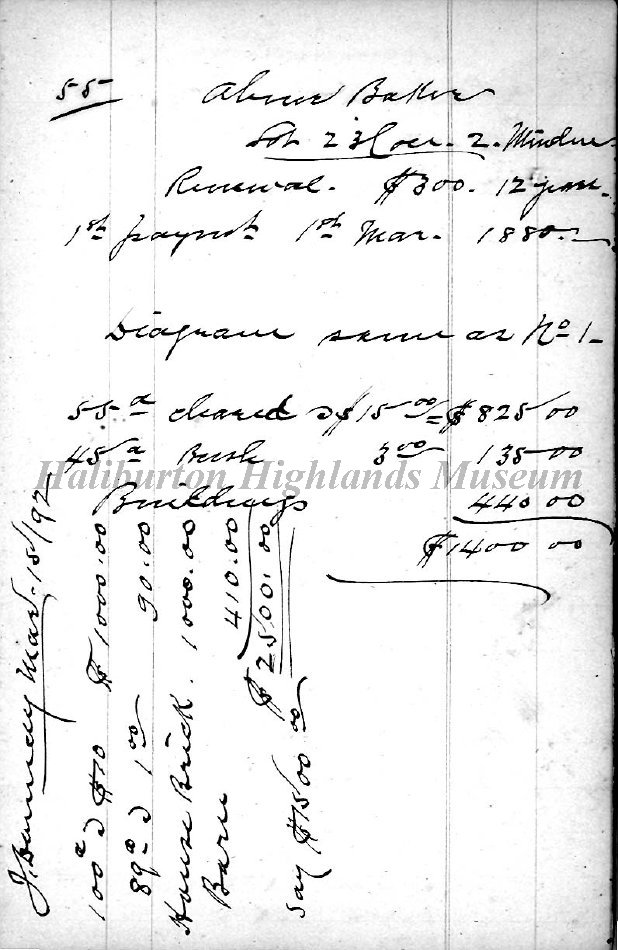 55 Abner Baker
Lot 23 Con. 2. Minden
Renewal. $300. 12 years.
1st paymt 1st Mar. 1880.
Diagram same as No 1.
55a cleared @ $15 00 = $825 00
45a Bush 3 00 135 00
Haliburton Highlands Museum
Buildings 440 00
$1400 00
Mar. 15/92
100a @ $10 $1000.00
89a @ 1 00 90.00
House Brick. 1000.00
Barn 410.00
$2500.00
say $1500 00